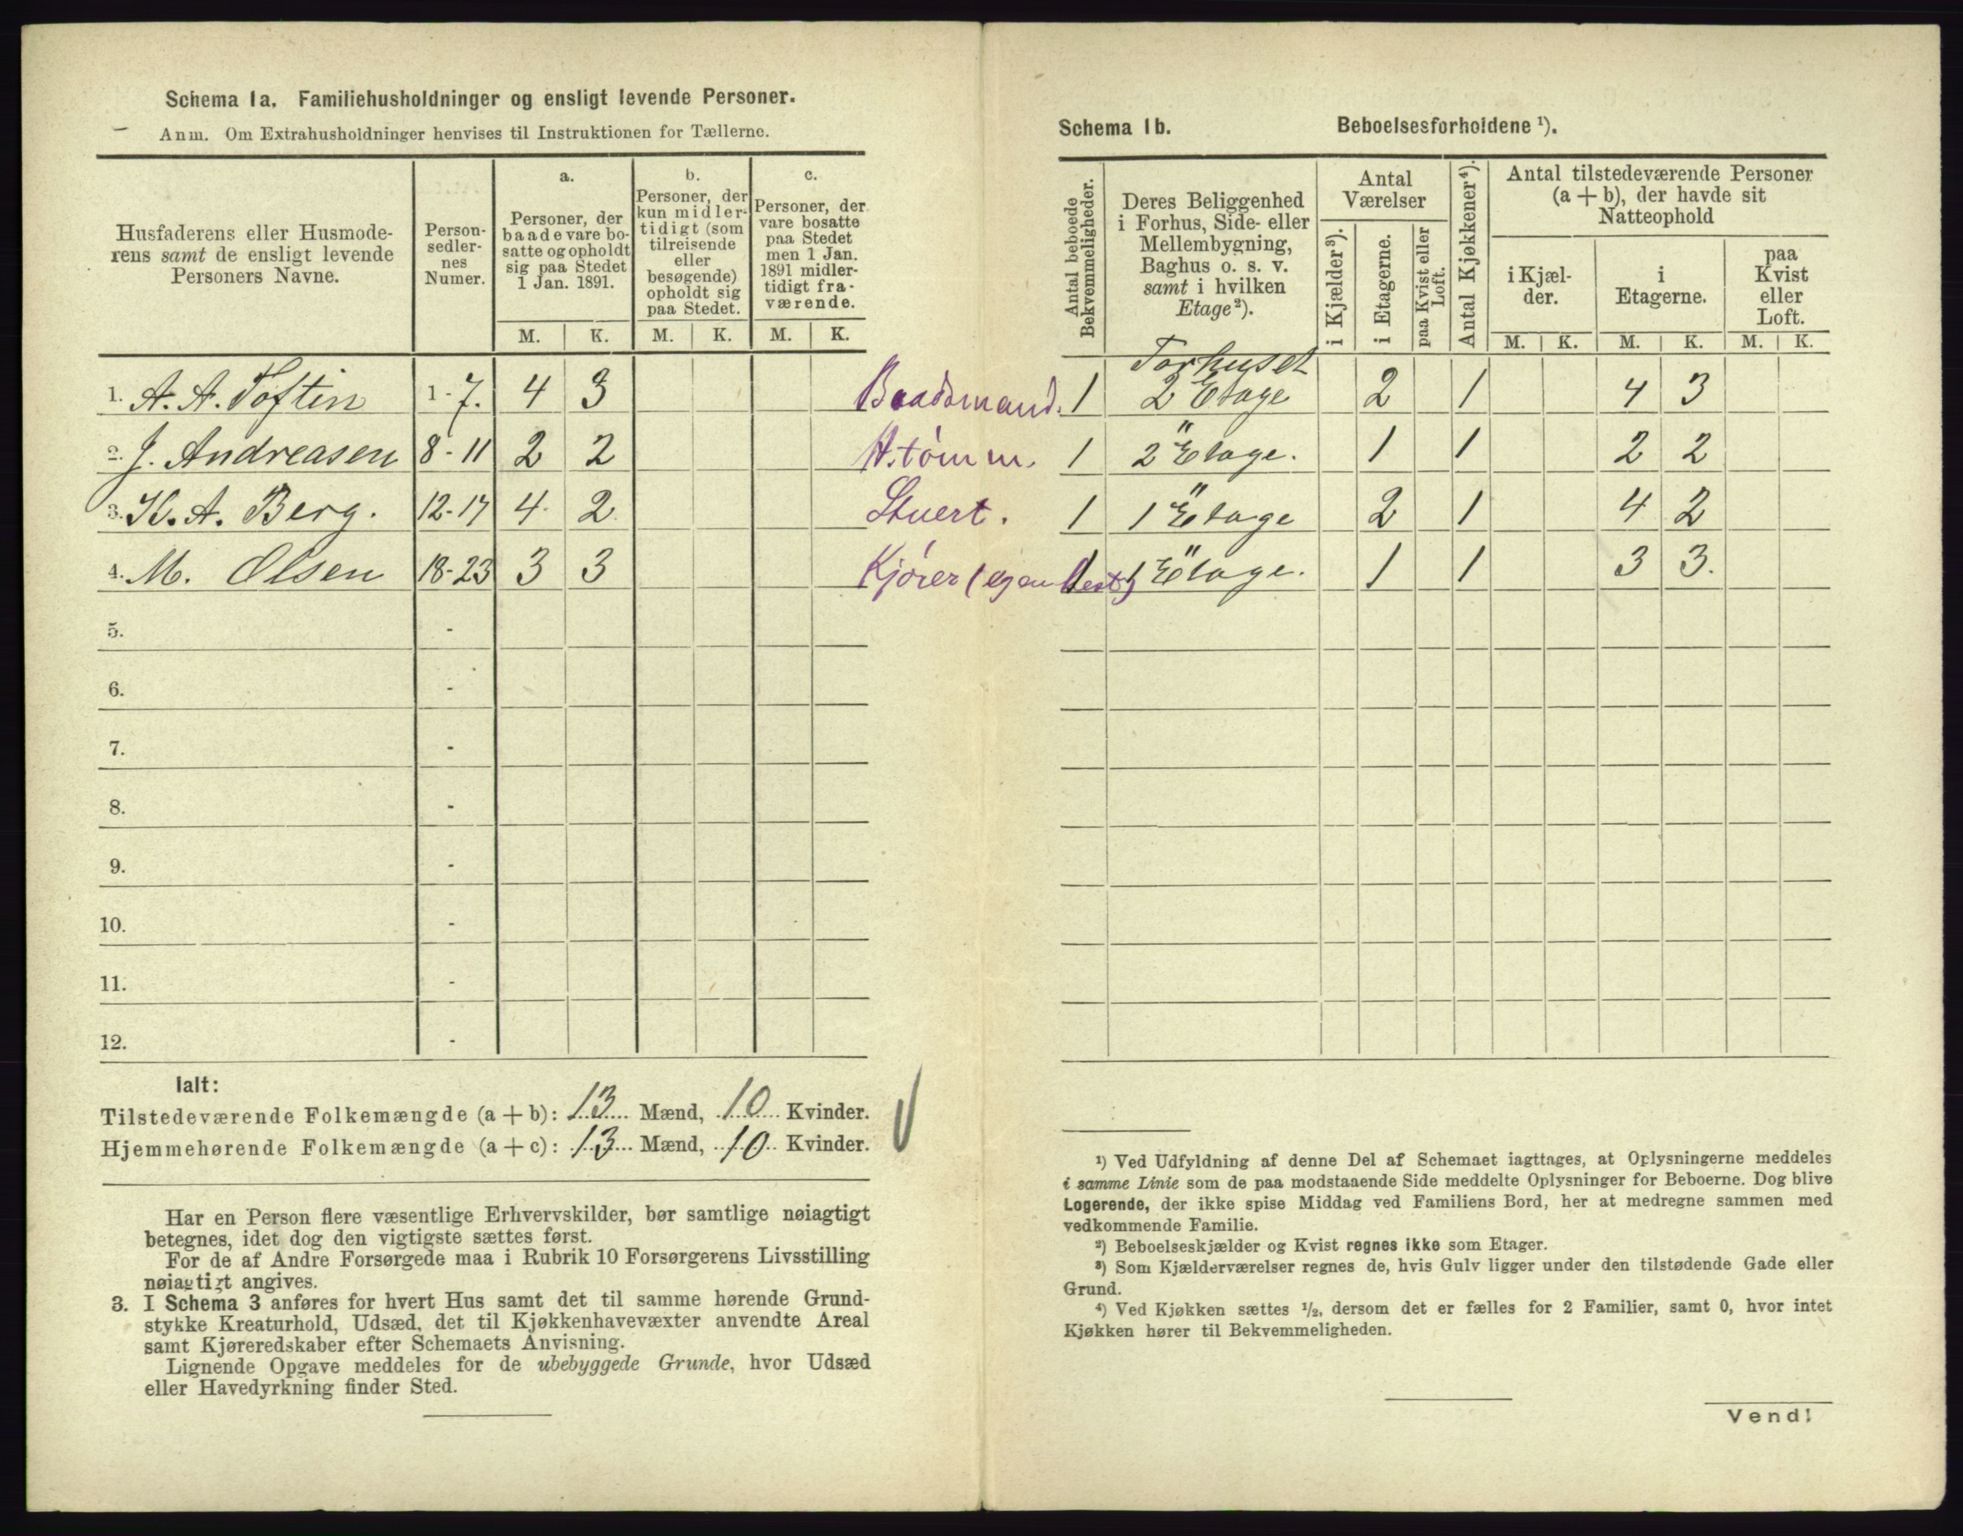 Schema 1a. Familiehusholdninger og ensligt levende Personer.
Anm. Om Extrahusholdninger henvises til Instruktionen for Tællerne.
Husfaderens eller Husmoderens samt de ensligt levende Personers Navne.
Personsedlernes Numer.
a. Personer, der baade vare bosatte og opholdt sig paa Stedet 1 Jan. 1891.
b. Personer, der kun midlertidigt (som tilreisende eller besøgende) opholdt sig paa Stedet.
c. Personer, der vare bosatte paa Stedet men 1 Jan. 1891 midlertidigt fraværende.
M. K. M. K. M. K.
1. A. A. Toftin 1-7. 4 3 Baadsmand.
2. J. Andreasen 8-11 2 2 H.tømm.
3. K. A. Berg. 12-17 4 2 Stuert.
4. M. Olsen 18-23 3 3 Kjører (egen Hest)
5. -
6. -
7. -
8. -
9. -
10. -
11. -
12. -
Ialt:
Tilstedeværende Folkemængde (a + b): 13 Mænd, 10 Kvinder.
Hjemmehørende Folkemængde (a + c): 13 Mænd, 10 Kvinder.
Har en Person flere væsentlige Erhvervskilder, bør samtlige nøiagtigt
betegnes, idet dog den vigtigste sættes først.
For de af Andre Forsørgede maa i Rubrik 10 Forsørgerens Livsstilling
nøiagtigt angives.
3. I Schema 3 anføres for hvert Hus samt det til samme hørende Grund-
stykke Kreaturhold, Udsæd, det til Kjøkkenhavevæxter anvendte Areal
samt Kjøreredskaber efter Schemaets Anvisning.
Lignende Opgave meddeles for de ubebyggede Grunde, hvor Udsæd
eller Havedyrkning finder Sted.
Schema 1b. Beboelsesforholdene ¹).
Antal beboede Bekvemmeligheder.
Deres Beliggenhed i Forhus, Side- eller Mellembygning, Baghus o. s. v. samt i hvilken Etage²).
Antal Værelser
i Kjælder³).
i Etagerne.
paa Kvist eller Loft.
Antal Kjøkkener⁴).
Antal tilstedeværende Personer (a + b), der havde sit Natteophold
i Kjælder.
i Etagerne.
paa Kvist eller Loft.
M. K. M. K. M. K.
Forhuset
1 2 Etage 2 1 4 3
1 2 " Etage. 1 1 2 2
1 1 " Etage 2 1 4 2
1 1 " Etage. 1 1 3 3.
¹) Ved Udfyldning af denne Del af Schemaet iagttages, at Oplysningerne meddeles
i samme Linie som de paa modstaaende Side meddelte Oplysninger for Beboerne. Dog blive
Logerende, der ikke spise Middag ved Familiens Bord, her at medregne sammen med
vedkommende Familie.
²) Beboelseskjælder og Kvist regnes ikke som Etager.
³) Som Kjælderværelser regnes de, hvis Gulv ligger under den tilstødende Gade eller
Grund.
⁴) Ved Kjøkken sættes ½, dersom det er fælles for 2 Familier, samt 0, hvor intet
Kjøkken hører til Bekvemmeligheden.
Vend!